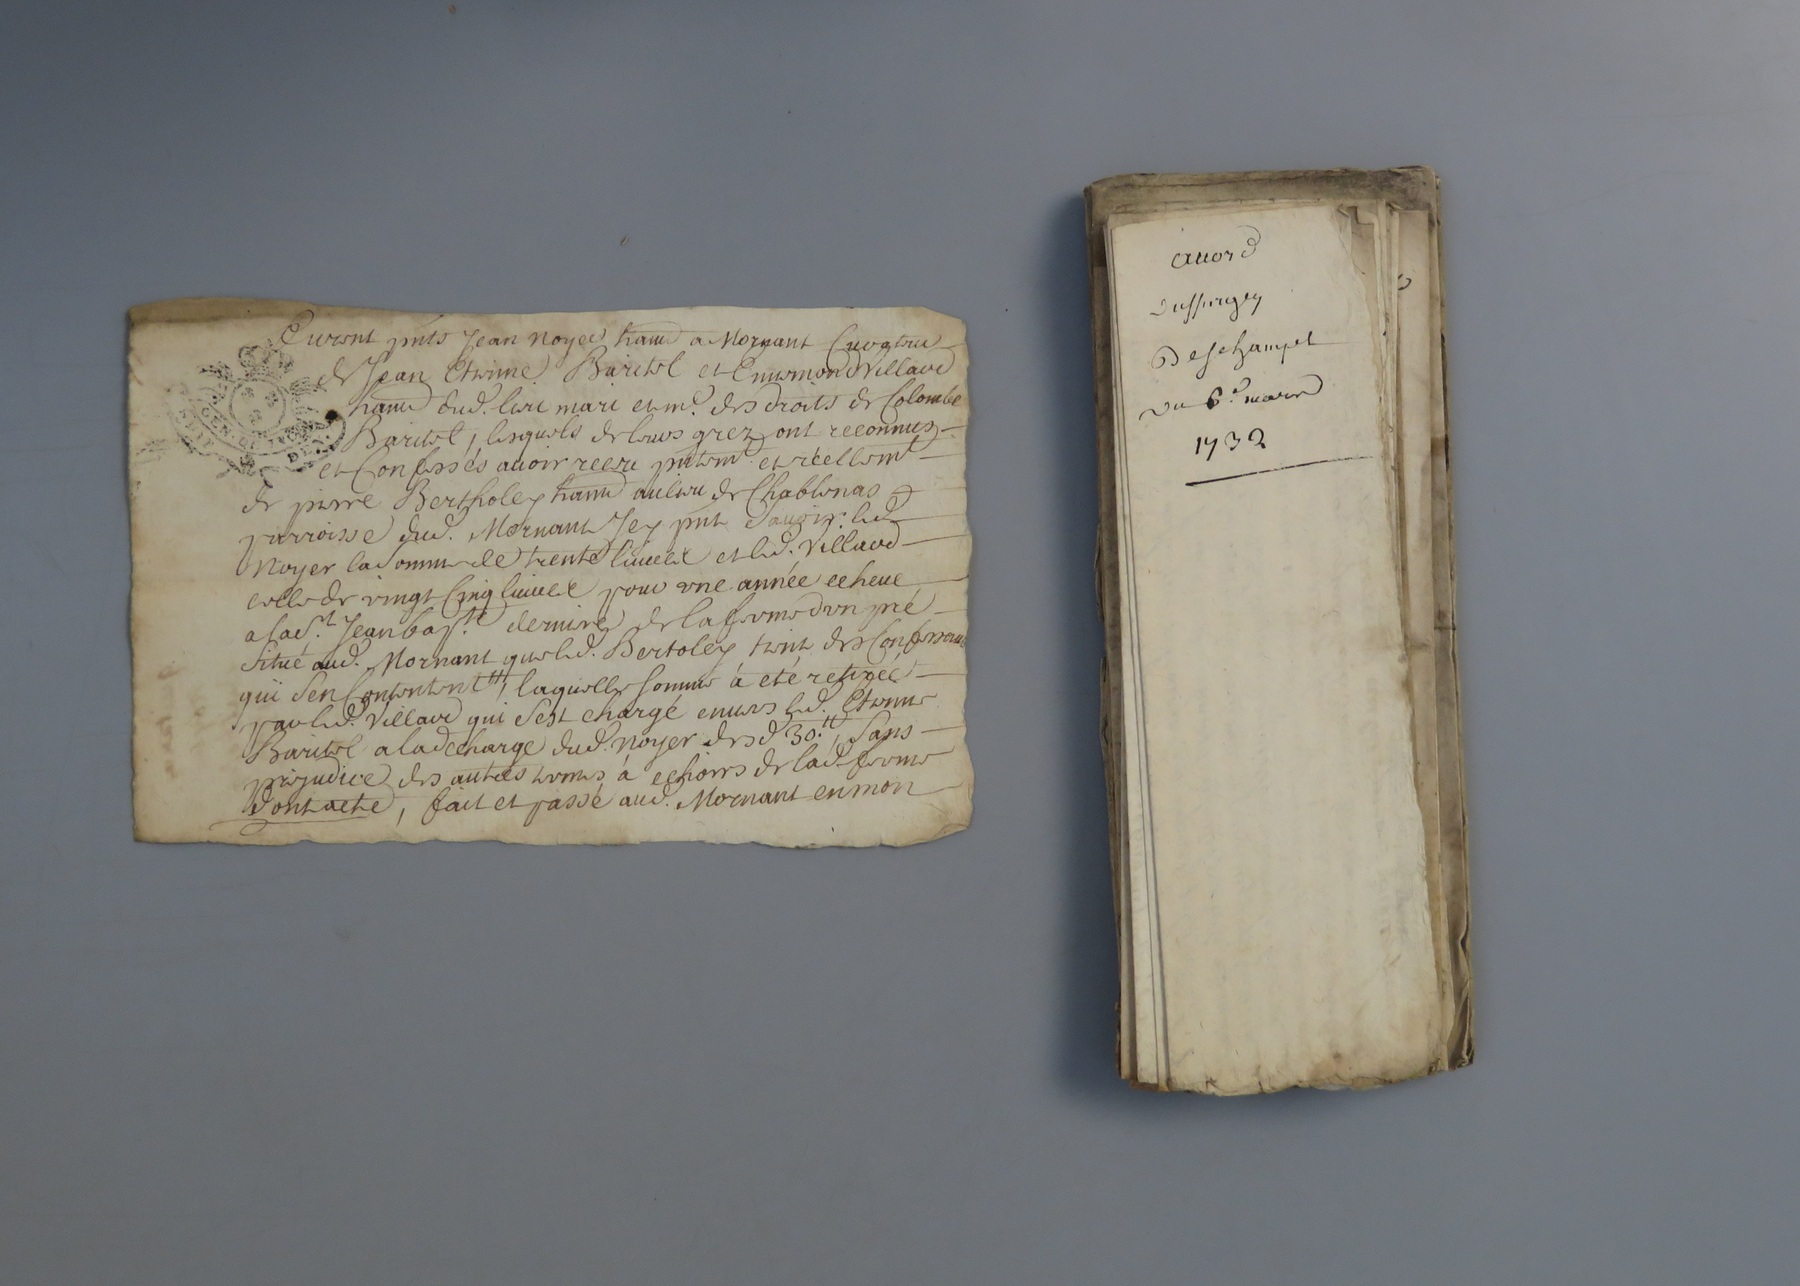 Furent pnts Jean Noyer hant a Mornant Curateur
de Jean Etienne Baritel et Ennemond Villard
hant dud. lieu mari et m.e des droits de Colombe
Baritel, lesquels de leurs grez ont reconnus
et Confessés avoir receu pntemt et réellemt
de pierre Bertholey hant au lieu de Chablenas
parroisse dud. Mornant Jcy pnt Sauoir led.
Noyer la Somme de trente liures et led. Villard
celle de vingt Cinq liures pour une année echeue
a la St Jean bapte derniere de la ferme d'un pré
Situé aud. Mornant que led. Bertoley tient des Confessants
qui s'en Contentent, laquelle somme à été retirée
par led. Villard qui s'est chargé envers led. Etienne
Baritel a la decharge dud. Noyer desd 30.tt, Sans
prejudice des autres termes à echoirs de lad. ferme
Dont acte, fait et passé aud. Mornant en mon
accord
Dussurgey
Deschampet
Du 6.e mars
1732